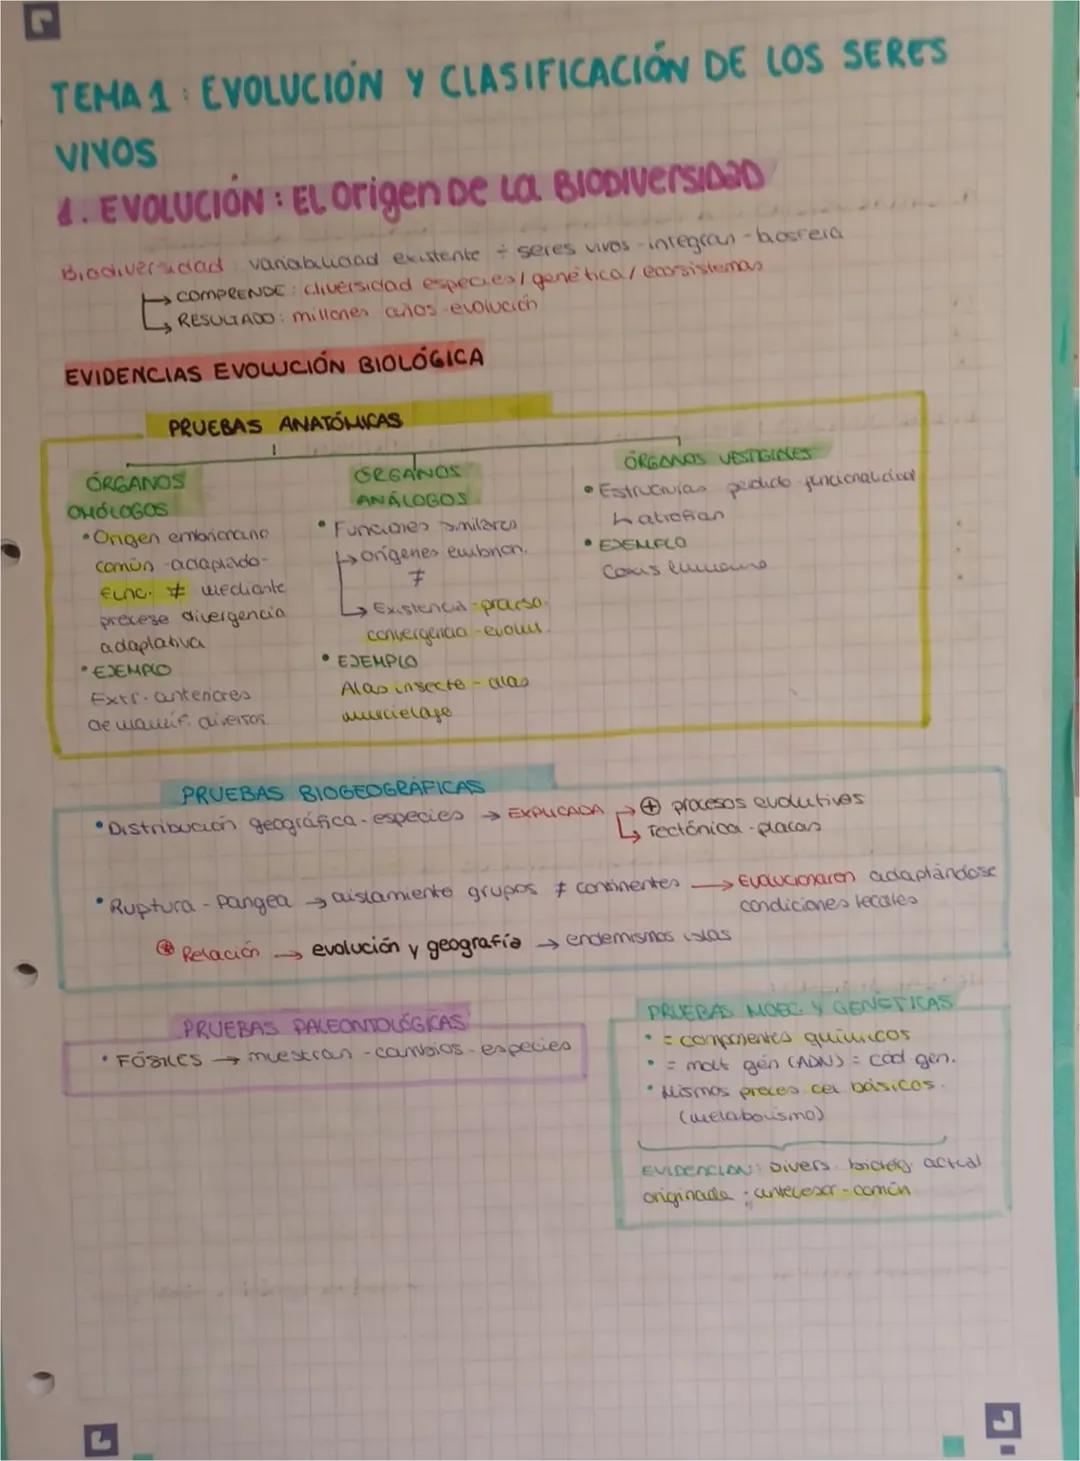 TEMA 1: EVOLUCIÓN Y CLASIFICACIÓN DE LOS SERES
VIVOS
1. EVOLUCIÓN: EL Origen De La BIODIVersIDaD
Biodiversidad variabilidad existente ÷ seres vivos - integran - biosfera
↳ COMPRENDE: diversidad especies / genética / ecosistemas
↳ RESULTADO: millones años - evolución
EVIDENCIAS EVOLUCIÓN BIOLÓGICA
PRUEBAS ANATÓMICAS
ÓRGANOS
OMÓLOGOS
• Origen embrionario
común - adaptado -
func. ≠ mediante
procese divergencia
adaptativa
• EJEMPLO
Extr. anteriores
de mamíf. diversos
ÓRGANOS
ANÁLOGOS
• Funciones similares
↳ orígenes embrion.
≠
↳ Existencia - proceso
convergencia - evolu.
• EJEMPLO
Alas insecto - alas
murcielago
ÓRGANOS VESTIGIALES
• Estructuras perdido funcionalidad
↳ atrofian
• EJEMPLO
Coxis humano
PRUEBAS BIOGEOGRÁFICAS
• Distribución geográfica - especies → EXPLICADA → ⊕ procesos evolutivos
↳ Tectónica - placas
• Ruptura - Pangea → aislamiento grupos ≠ continentes → Evolucionaron adaptándose
condiciones locales
⊛ Relación → evolución y geografía → endemismos islas
PRUEBAS PALEONTOLÓGICAS
• FÓSILES → muestran - cambios - especies
PRUEBAS MOEC. Y GENÉTICAS
• = componentes químicos
• = molt gén (ADN) = cód gen.
• Mismos proces cel básicos.
(metabolismo)
EVIDENCIAN: Divers. biológ. actual
originada : antecesor - común